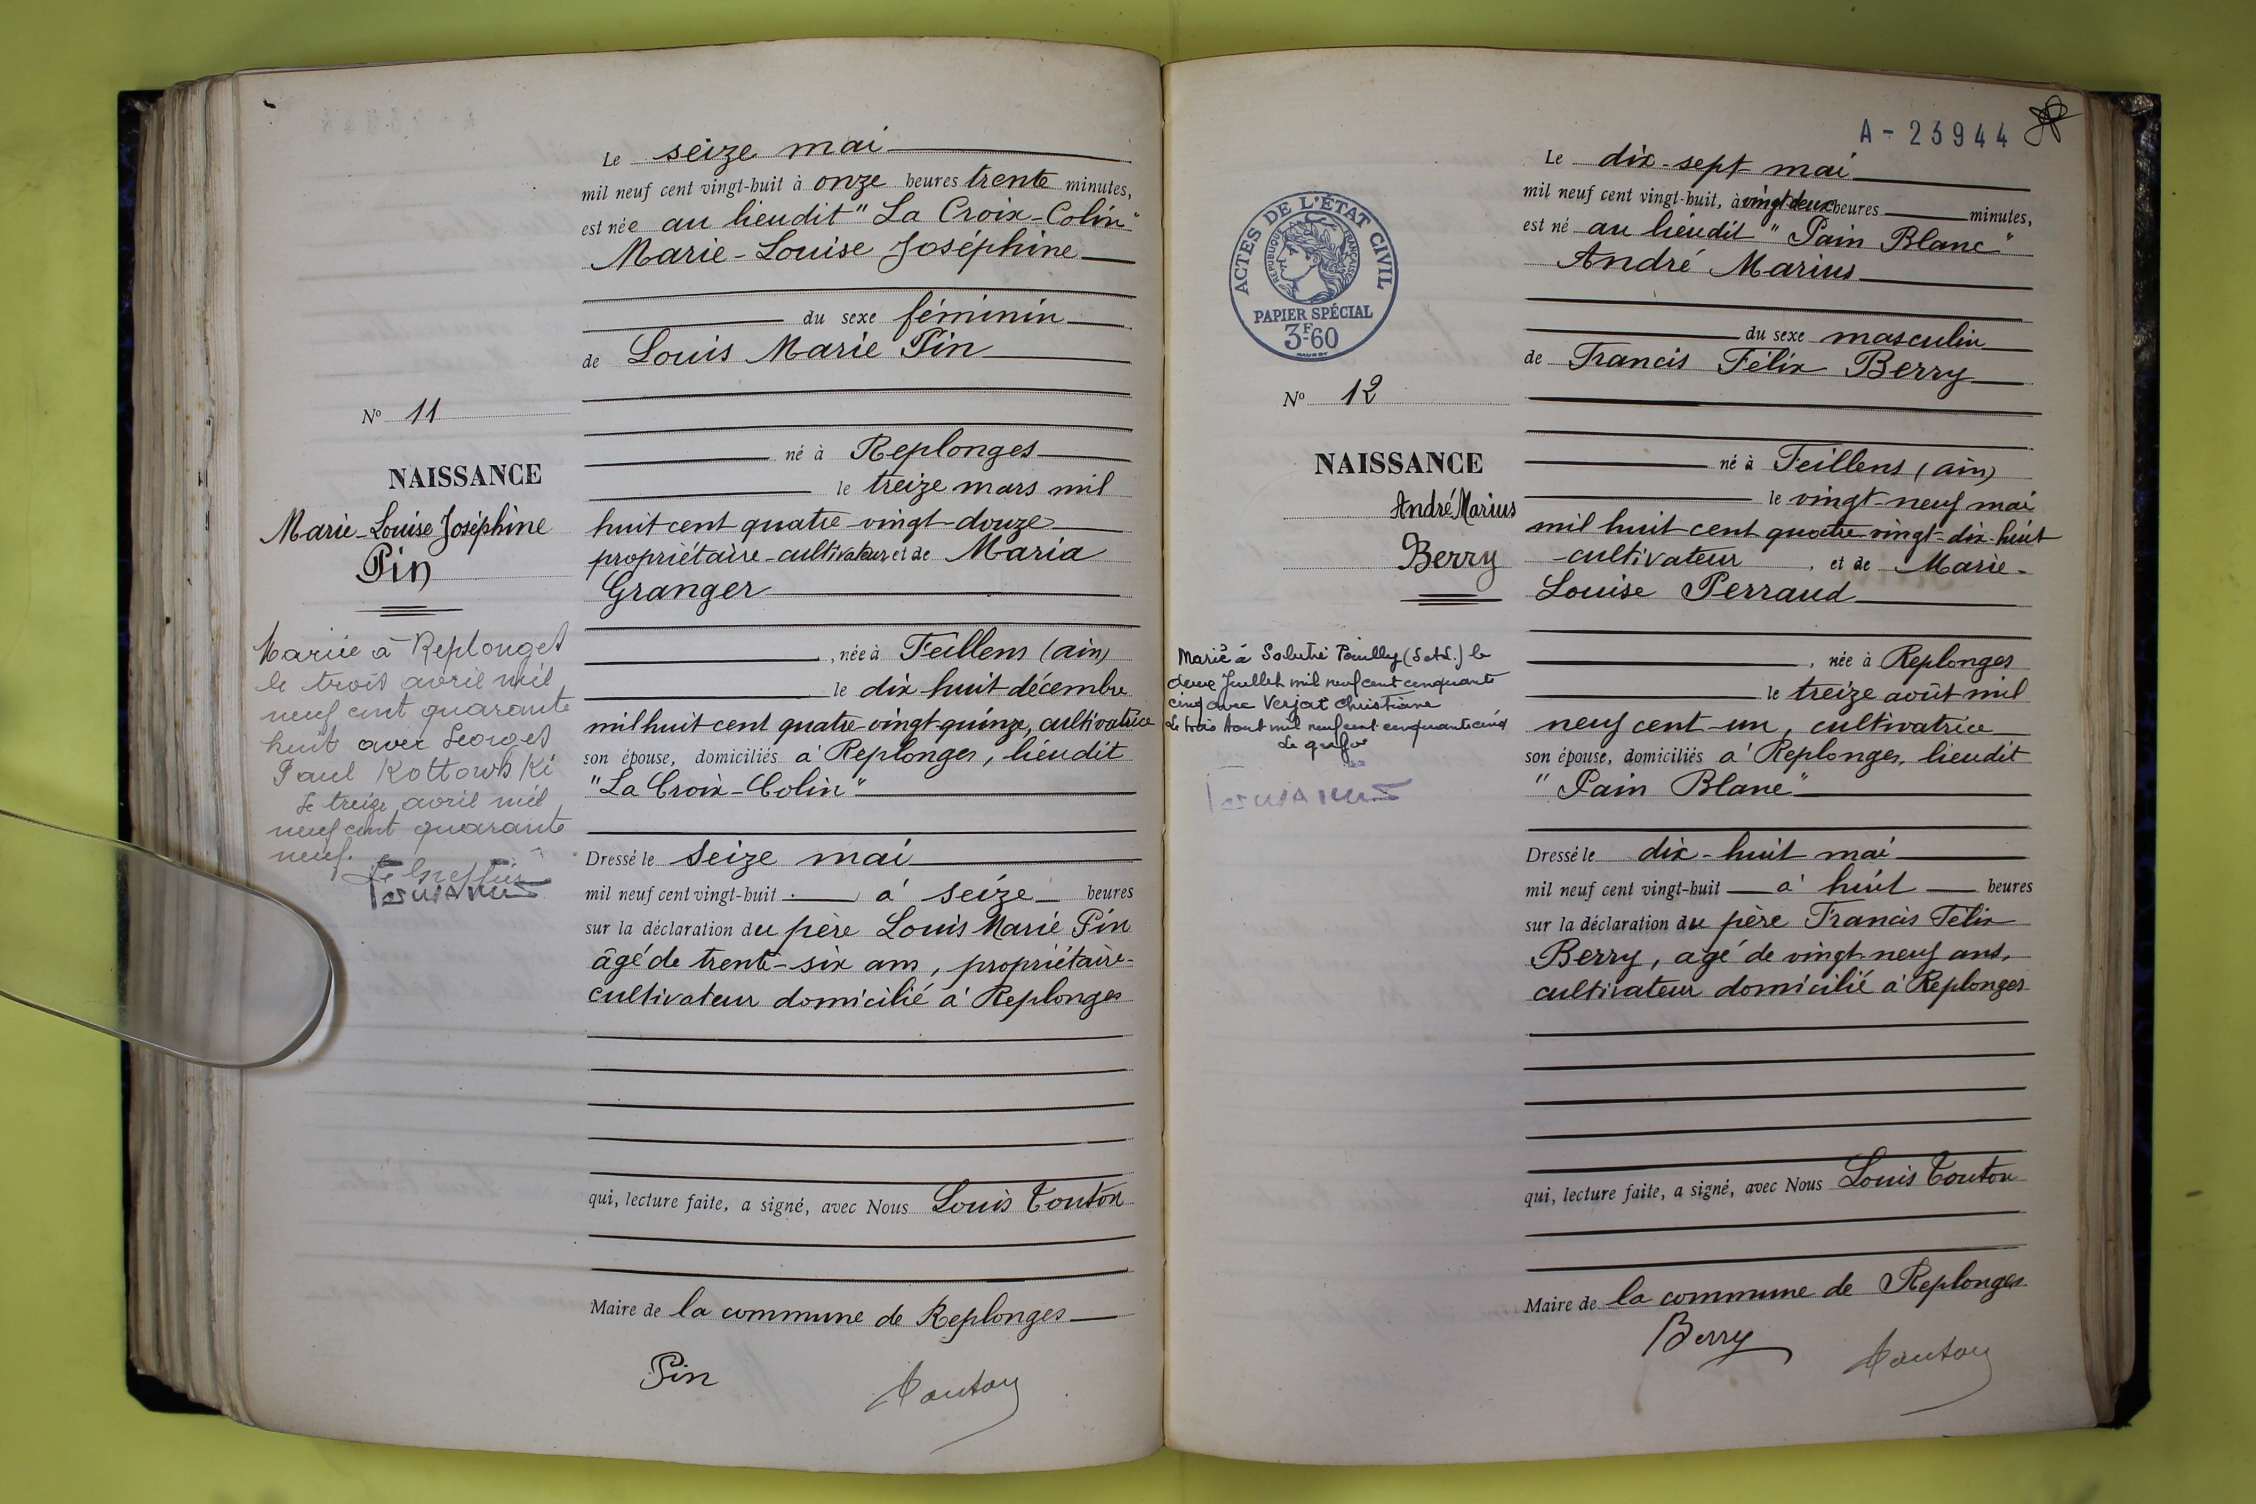 Le seize mai
mil neuf cent vingt-huit à onze heures trente minutes,
est née au lieudit "La Croix-Colin"
Marie-Louise Joséphine
du sexe féminin
de Louis Marie Pin
N° 11
né à Replonges
NAISSANCE
le treize mars mil
Marie-Louise Joséphine
Pin
huit cent quatre-vingt-douze
propriétaire-cultivateur et de Maria
Granger
, née à Feillens (ain)
le dix huit décembre
mil huit cent quatre-vingt-quinze, cultivatrice
son épouse, domiciliés à Replonges, lieudit
"La Croix-Colin"
Mariée à Replonges
le trois avril mil
neuf cent quarante
huit avec Georges
Paul Kottowski
Le treize avril mil
neuf cent quarante
neuf.
Le Greffier
Dressé le seize mai
mil neuf cent vingt-huit à seize heures
sur la déclaration du père Louis Marie Pin
âgé de trente-six ans, propriétaire-
cultivateur domicilié à Replonges
qui, lecture faite, a signé, avec Nous Louis Touton
Maire de la commune de Replonges
Pin
Touton
A-23944
Le dix-sept mai
mil neuf cent vingt-huit, à vingt deux heures minutes,
est né au lieudit "Pain Blanc"
André Marius
ACTES DE L'ÉTAT CIVIL
RÉPUBLIQUE FRANÇAISE
PAPIER SPÉCIAL
3F60
du sexe masculin
de Francis Félix Berry
N° 12
NAISSANCE
André Marius
Berry
né à Feillens (ain)
le vingt-neuf mai
mil huit cent quatre-vingt-dix-huit
cultivateur, et de Marie-
Louise Perraud
, née à Replonges
le treize août mil
neuf cent-un, cultivatrice
son épouse, domiciliés à Replonges, lieudit
"Pain Blanc"
Marié à Solutré Pouilly (S et L.) le
deux Juillet mil neuf cent cinquante
cinq avec Verjat Christiane
Le trois Aout mil neuf cent cinquante cinq
Dressé le dix-huit mai
mil neuf cent vingt-huit à huit heures
sur la déclaration du père Francis Félix
Berry, agé de vingt-neuf ans,
cultivateur domicilié à Replonges
qui, lecture faite, a signé, avec Nous Louis Touton
Maire de la commune de Replonges
Berry
Touton